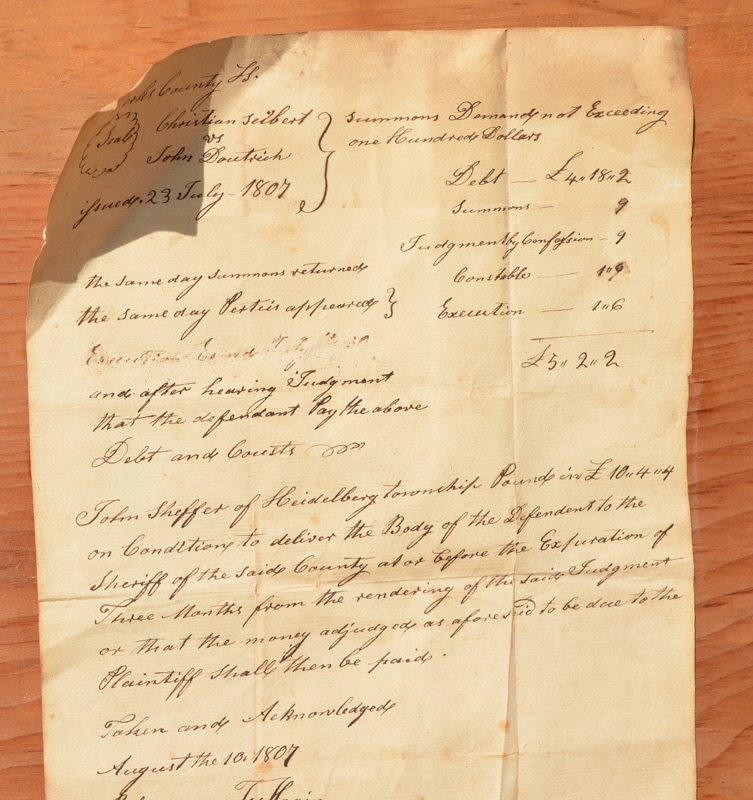 County Ss.
Seal
Christian Seibert
vs
John Doutrich
issued. 23 July - 1807
Summons Demand not Exceeding
one Hundred Dollars
Debt — £4,,18,,2
Summons — 9
Judgment by Confession - 9
Constable — 1,,0
Execution — 1,,6
£5,,2,,2
the same day Summons returned
the same day Perties appeared
Execution
and after hearing Judgment
that the defendant Pay the above
Debt and Cousts
John Sheffer of Heidelberg township Pound in £10,,4,,4
on Condition to deliver the Body of the Defendent to the
Sheriff of the said County at or before the Expuration of
Three Months from the rendering of the said Judgment
or that the money adjudged as afores'd to be due to the
Plaintiff Shall then be paid.
Taken and Acknowledged
August the 10. 1807